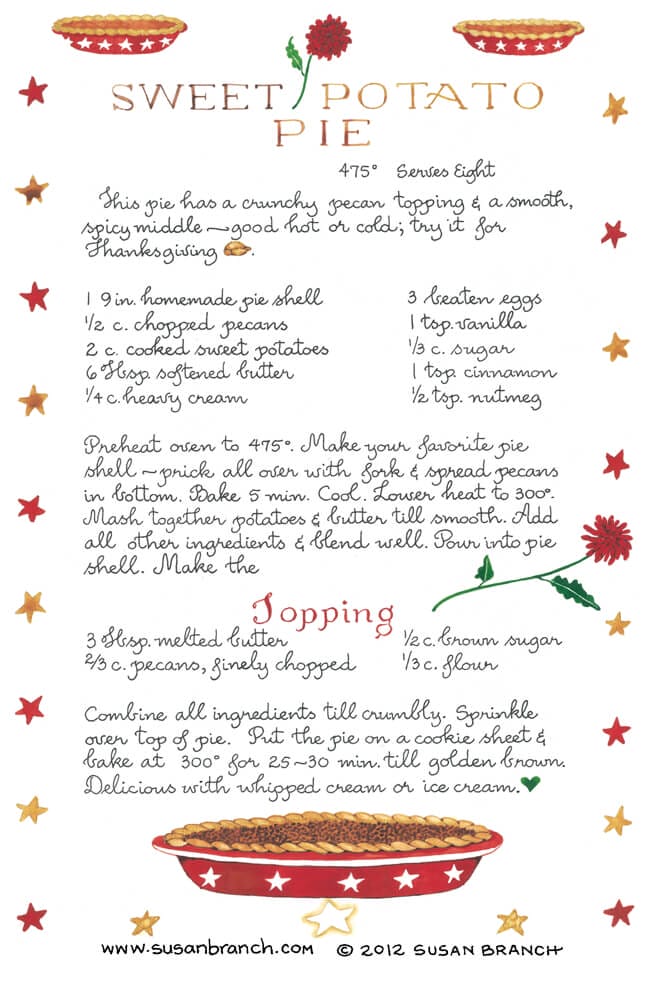 SWEET POTATO
PIE
475° Serves Eight
This pie has a crunchy pecan topping & a smooth,
spicy middle ~ good hot or cold; try it for
Thanksgiving .
1 9 in. homemade pie shell
1/2 c. chopped pecans
2 c. cooked sweet potatoes
6 Tbsp. softened butter
1/4 c. heavy cream
3 beaten eggs
1 tsp. vanilla
1/3 c. sugar
1 tsp. cinnamon
1/2 tsp. nutmeg
Preheat oven to 475°. Make your favorite pie
shell ~ prick all over with fork & spread pecans
in bottom. Bake 5 min. Cool. Lower heat to 300°.
Mash together potatoes & butter till smooth. Add
all other ingredients & blend well. Pour into pie
shell. Make the
Topping
3 Tbsp. melted butter
2/3 c. pecans, finely chopped
1/2 c. brown sugar
1/3 c. flour
Combine all ingredients till crumbly. Sprinkle
over top of pie. Put the pie on a cookie sheet &
bake at 300° for 25~30 min. till golden brown.
Delicious with whipped cream or ice cream.
www.susanbranch.com © 2012 SUSAN BRANCH